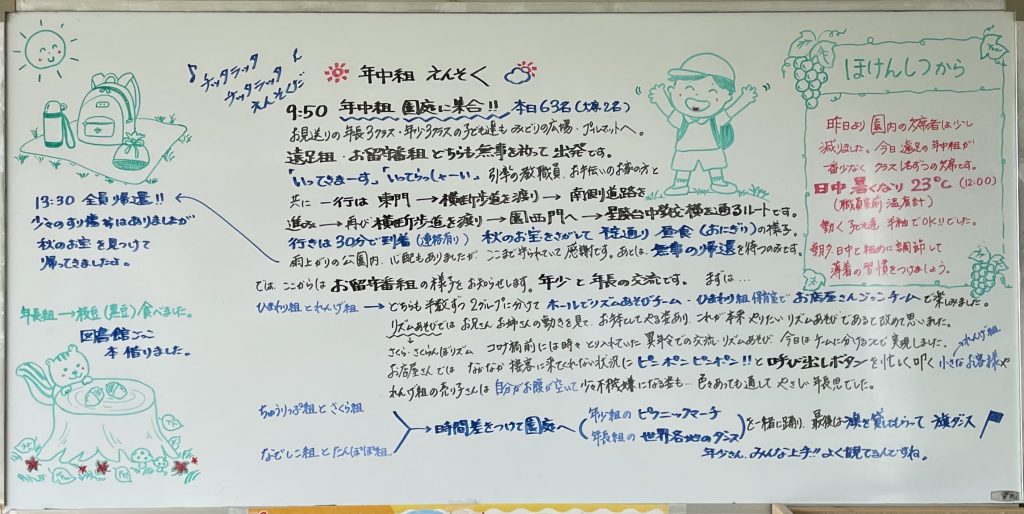 ♪チッタラッタ
チッタラッタ
えんそくだ
年中組 えんそく
9:50 年中組 園庭に集合!! 本日63名(欠席2名)
お見送りの年長3クラス・年少3クラスの子ども達も みどりの広場・プルマットへ。
遠足組・お留守番組どちらも無事を祈って出発です。
「いってきまーす」「いってらっしゃーい」引率の教職員、お手伝いのお家の方と
共に 一行は 東門→横断歩道を渡り→南側道路を
進み→再び横断歩道を渡り→園西門へ→星陵台中学校横を通るルートです。
行きは30分で到着(連絡有り) 秋のお宝をさがして 予定通り 昼食(おにぎり)の様子。
雨上がりの公園内、心配もありましたが ここまで守られていて感謝です。あとは、無事の帰還を待つのみです。
では、ここからは お留守番組の様子をお知らせします。年少と年長の交流です。 まずは…
ひまわり組とれんげ組→どちらも半数ずつ2グループに分けて ホールでリズムあそびチーム・ひまわり組保育室でお店屋さんごっこチームで楽しみました。
リズムあそびでは お兄さんお姉さんの動きを見て、お待ちしてやる姿あり、これが本来やりたいリズムあそびであると改めて思いました。
さくら・さくらんぼリズム コロナ禍前には時々とり入れていた異年令での交流リズムあそび、今日はチームに分けることで実現しました。
お店屋さんでは なかなか接客に来てくれない状況に ピンポンピンポーン!!と呼び出しボタンを忙しく叩く 小さなお客様や
れんげ組
れんげ組の売り子さんは 自分がお腹が空いて少々不機嫌になる者も… 色々あっても通して やさしい年長児でした。
ちゅうりっぷ組とさくら組
なでしこ組とたんぽぽ組
→時間差をつけて園庭へ
年少組の ピクニックマーチ
年長組の 世界各地のダンス
を一緒に踊り、最後は旗を貸してもらって 旗ダンス
年少さん、みんな上手!! よく観てるんですね。
13:30 全員帰還!!
少々のすり傷等はありましたが
秋のお宝を見つけて
帰ってきましたよ。
年長組→枝豆(黒豆)食べました。
図書館ごっこ
本借りました。
ほけんしつから
昨日より園内の欠席者は少し
減りました。今日遠足の年中組が
一番少なく クラス1名ずつの欠席です。
日中 暑くなり 23℃(12:00)
(職員室前 温度計)
動く子ども達 半袖でOK!!でした。
朝夕、日中と細めに調節して
薄着の習慣をつけましょう。